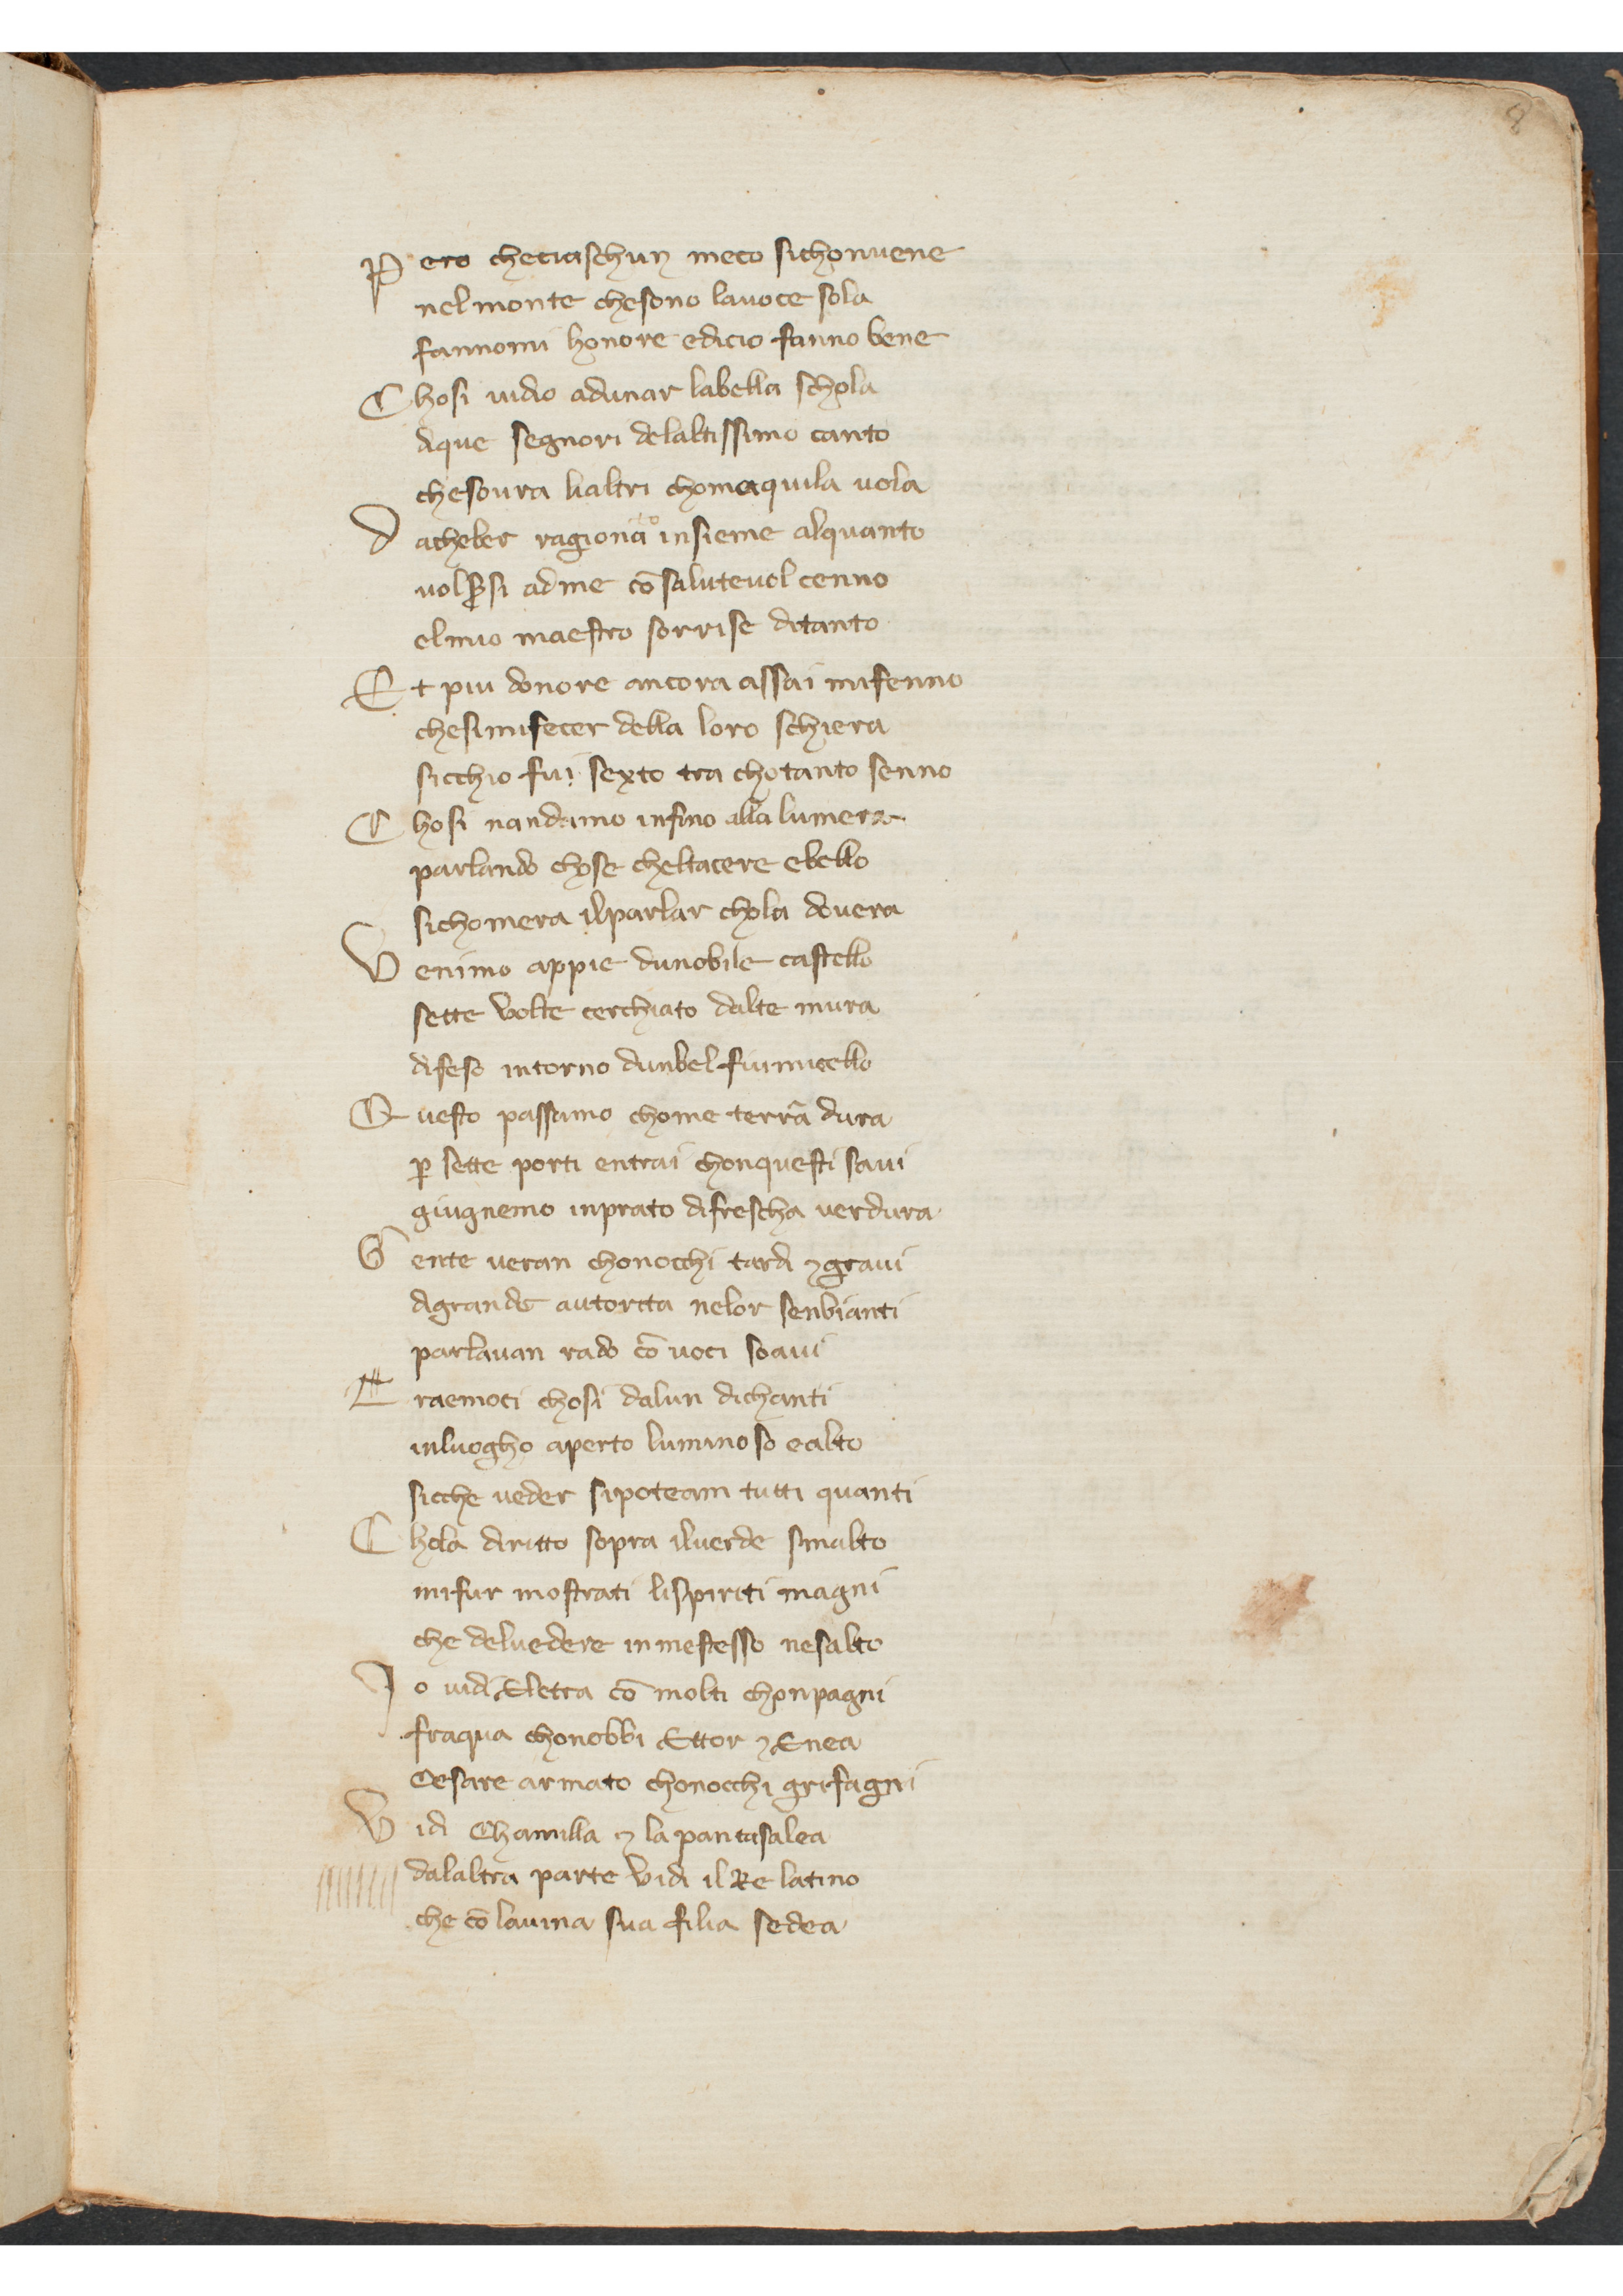 8
Pero checiaschun meco sichonuene
nel monte chesono lauoce sola
fannomi honore edicio fanno bene
Chosi uidio adunar labella schola
dique segnori delaltissimo canto
chesoura lialtri chomaquila uola
Dacheber ragionato insieme alquanto
volsersi ad me cō salutevol cenno
elmio maestro sorrise ditanto
Et piu donore ancora assai mifenno
chesimifecer della loro schiera
sicchio fui sexto tra chotanto senno
Chosi nandamo infino alla lumera
parlando chose cheltacere ebello
sichomera ilparlar chola douera
Venimo appie dunobile castello
sette volte cerchiato dalte mura
difeso intorno dunbel fiumicello
Questo passamo chome terra dura
ꝑ sette porti entrai chonquesti saui
giugnemo inprato difrescha uerdura
Gente ueran chonocchi tardi ⁊ graui
digrande autorita nelor senbianti
parlauan rado cō uoci soaui
Traemoci chosi dalun dichanti
inluogho aperto luminoso ealto
sicche ueder sipoteam tutti quanti
Chola diritto sopra iluerde smalto
mifur mostrati lispiriti magni
che deluedere inmestesso nesalto
Io uidi Eletra cō molti chonpagni
fraqua chonobbi Ettor ⁊ Enea
Cesare armato chonocchi grifagni
Vidi Chamilla ⁊ la pantasalea
dalaltra parte vidi il Re latino
che cō lauina sua filia sedea